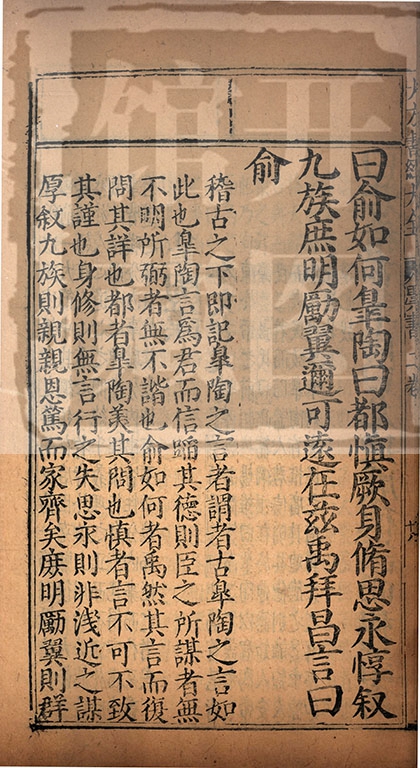 曰俞如何臯陶曰都慎厥身脩思永惇叙
九族庶明勵翼邇可遠在兹禹拜昌言曰
俞
稽古之下即記臯陶之言者謂者古臯陶之言如
此也臯陶言爲君而信蹈其德則臣之所謀者無
不明所弼者無不諧也俞如何者禹然其言而復
問其詳也都者臯陶美其問也慎者言不可不致
其謹也身修則無言行之失思永則非浅近之謀
厚叙九族則親親恩篤而家齊矣庶明勵翼則群